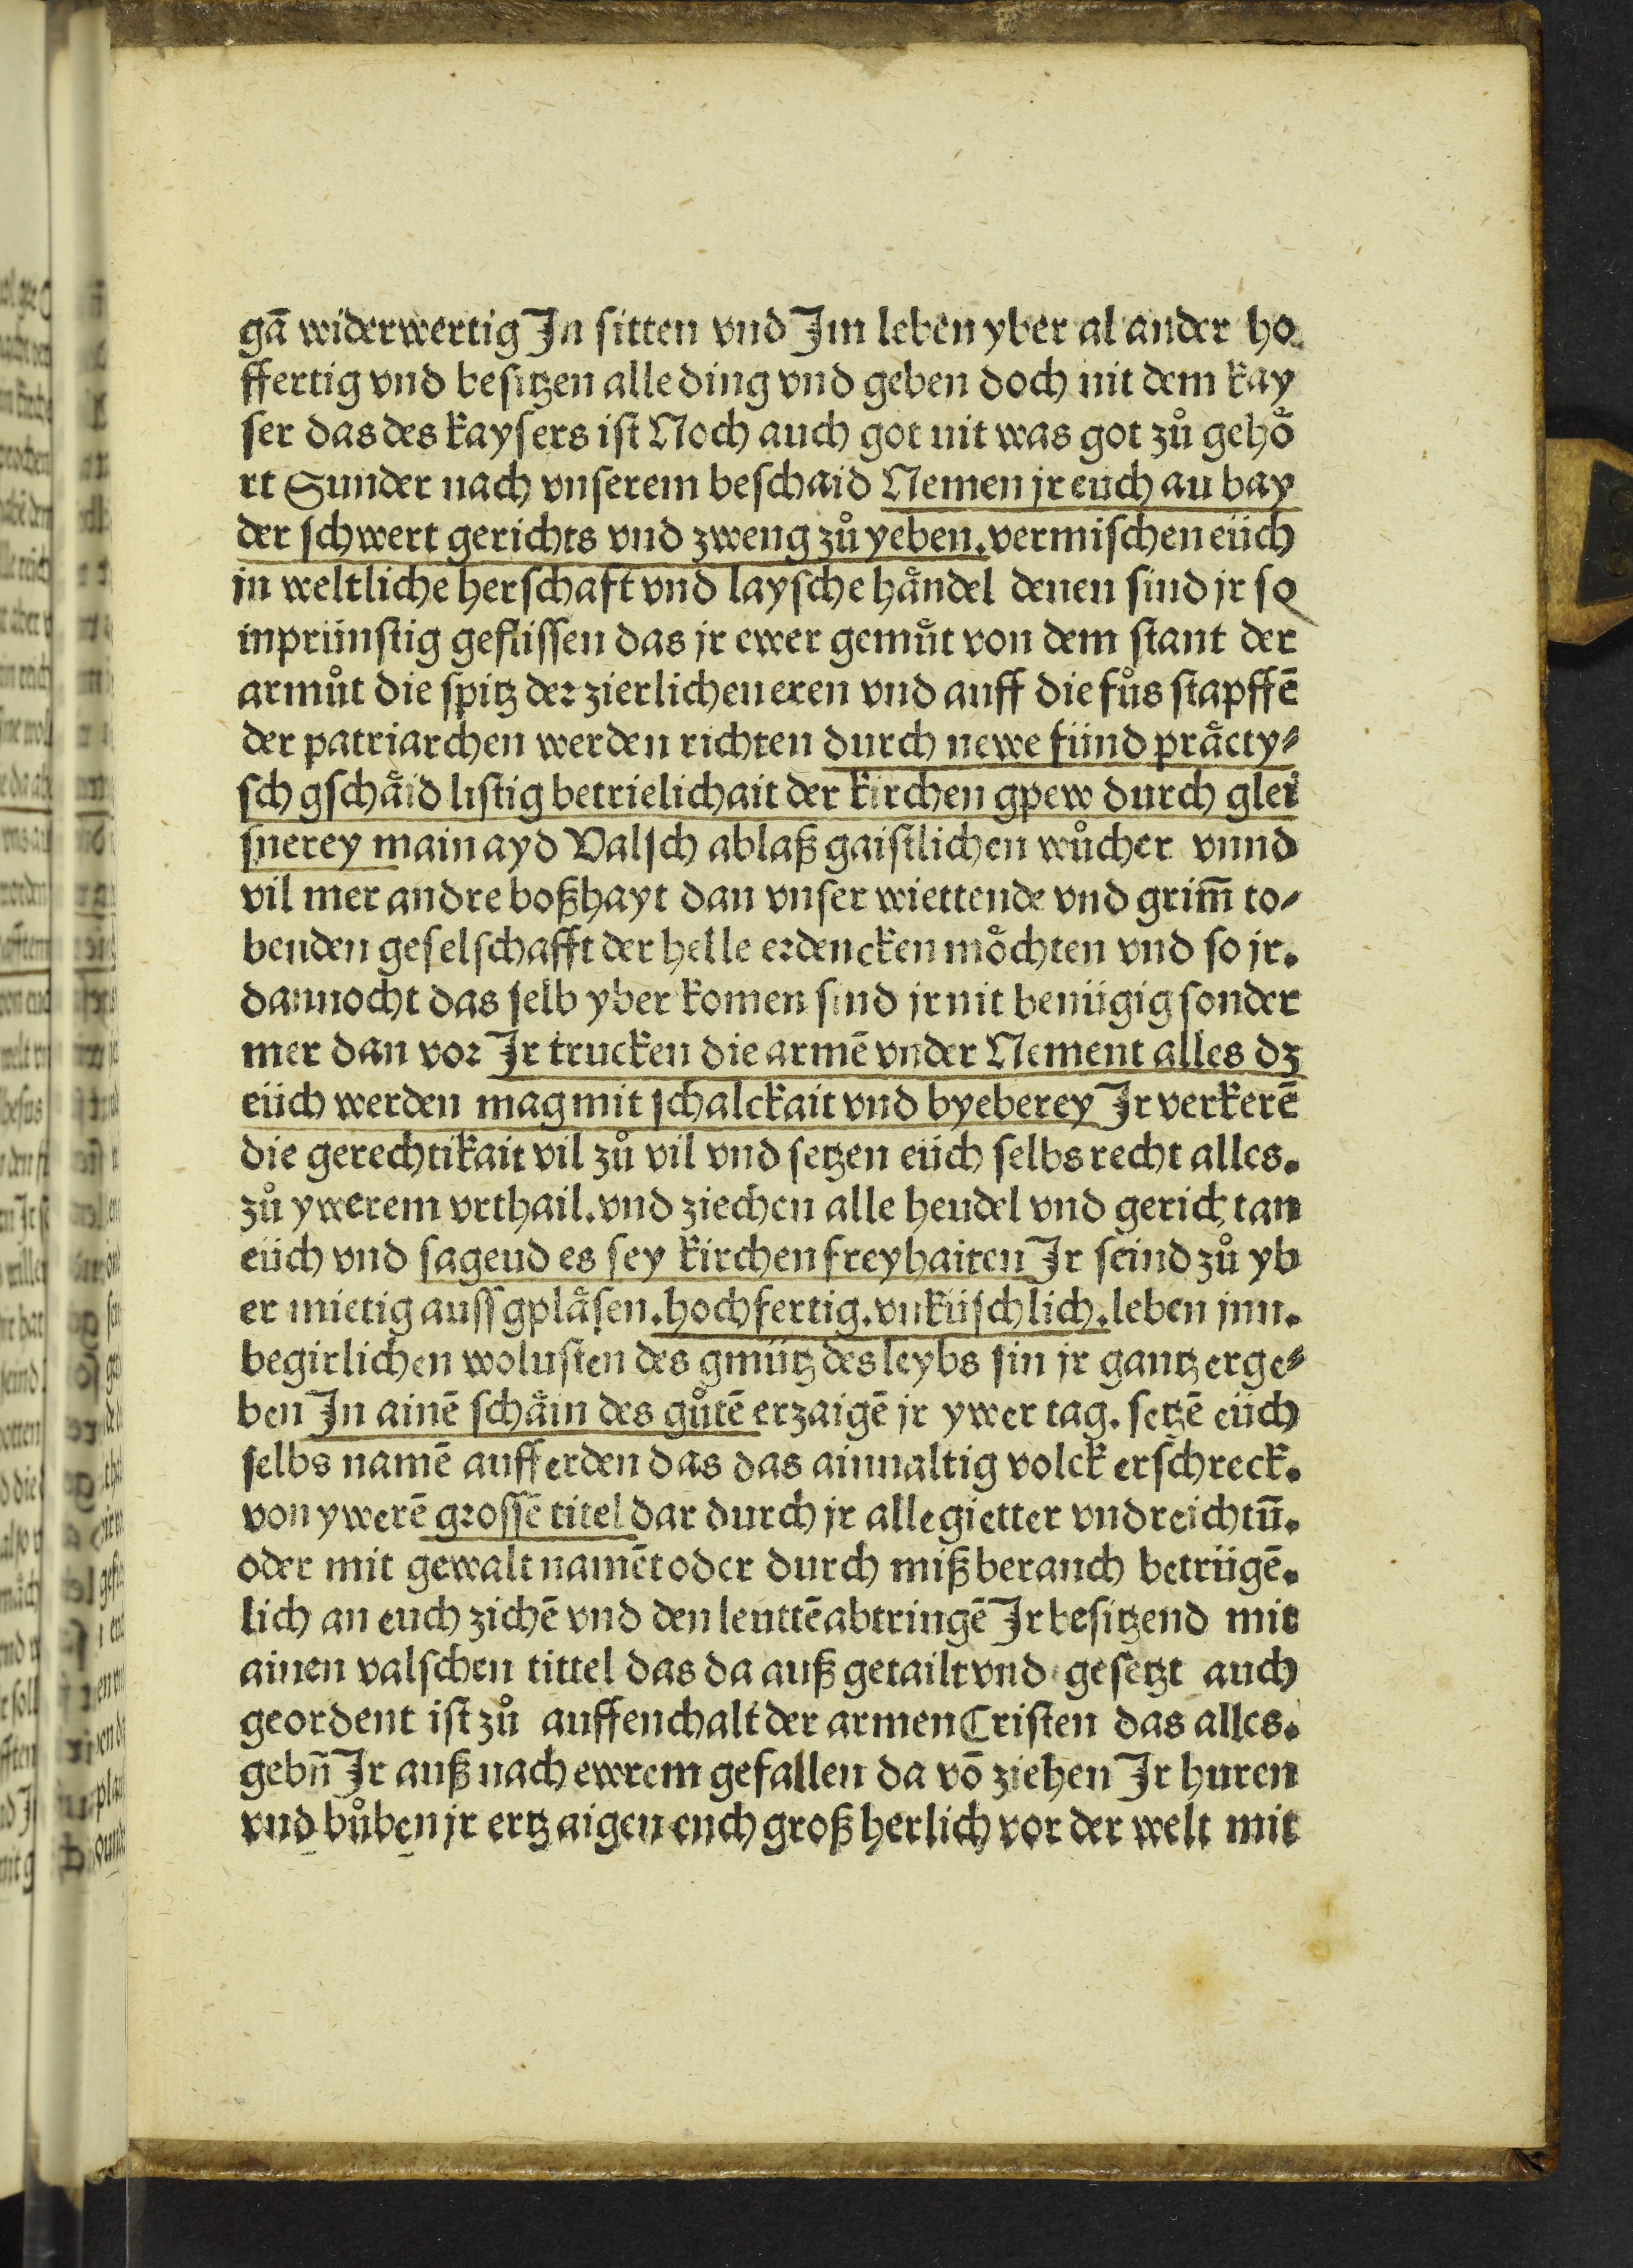 gā widerwertig In sitten vnd Im leben yber al ander ho
ffertig vnd besitzen alle ding vnd geben doch nit dem kay
ser das des kaysers ist Noch auch got nit was got zů gehoͤ
rt Sunder nach vnserem beschaid Nemen jr euch an bay
der schwert gerichts vnd zweng zů yeben. vermischen eüch
in weltliche herschaft vnd laysche haͤndel denen sind jr so
inprünstig geflissen das jr ewer gemuͤt von dem stant der
armůt die spitz der zierlichen eren vnd auff die fůs stapffē
der patriarchen werden richten durch newe fünd praͤcty⸗
sch gschaͤid listig betrielichait der kirchen gpew durch glei
snerey main ayd Valsch ablaß gaistlichen wůcher vnnd
vil mer andre boßhayt dan vnser wiettende vnd grim̄ to⸗
benden geselschafft der helle erdencken moͤchten vnd so jr.
dannocht das selb yber komen sind jr nit benügig sonder
mer dan vor Ir trucken die armē vnder Nement alles dz
eüch werden mag mit schalckait vnd byeberey Ir verkerē
die gerechtikait vil zů vil vnd setzen eüch selbs recht alles.
zů ywerem vrthail. vnd ziechen alle hendel vnd gericht an
eüch vnd sagend es sey kirchen freyhaiten Ir seind zů yb
er mietig auss gplaͤsen. hochfertig. vnküschlich. leben jnn.
begirlichen wolusten des gmütz des leybs sin jr gantz erge⸗
ben In ainē schaͤin des gůtē erzaigē jr ywer tag. setzē eüch
selbs namē auff erden das das ainualtig volck erschreck.
von ywerē grossē titel dar durch jr alle gietter vnd reichtū.
oder mit gewalt namēt oder durch mißberauch betrügē.
lich an euch zichē vnd den leuttē abtringē Ir besitzend mit
ainen valschen tittel das da auß getailt vnd gesetzt auch
geordent ist zů auffenchalt der armen Cristen das alles.
gebn̄ Ir auß nach ewrem gefallen da vō ziehen Ir huren
vnd bůben jr ertzaigen euch groß herlich vor der welt mit